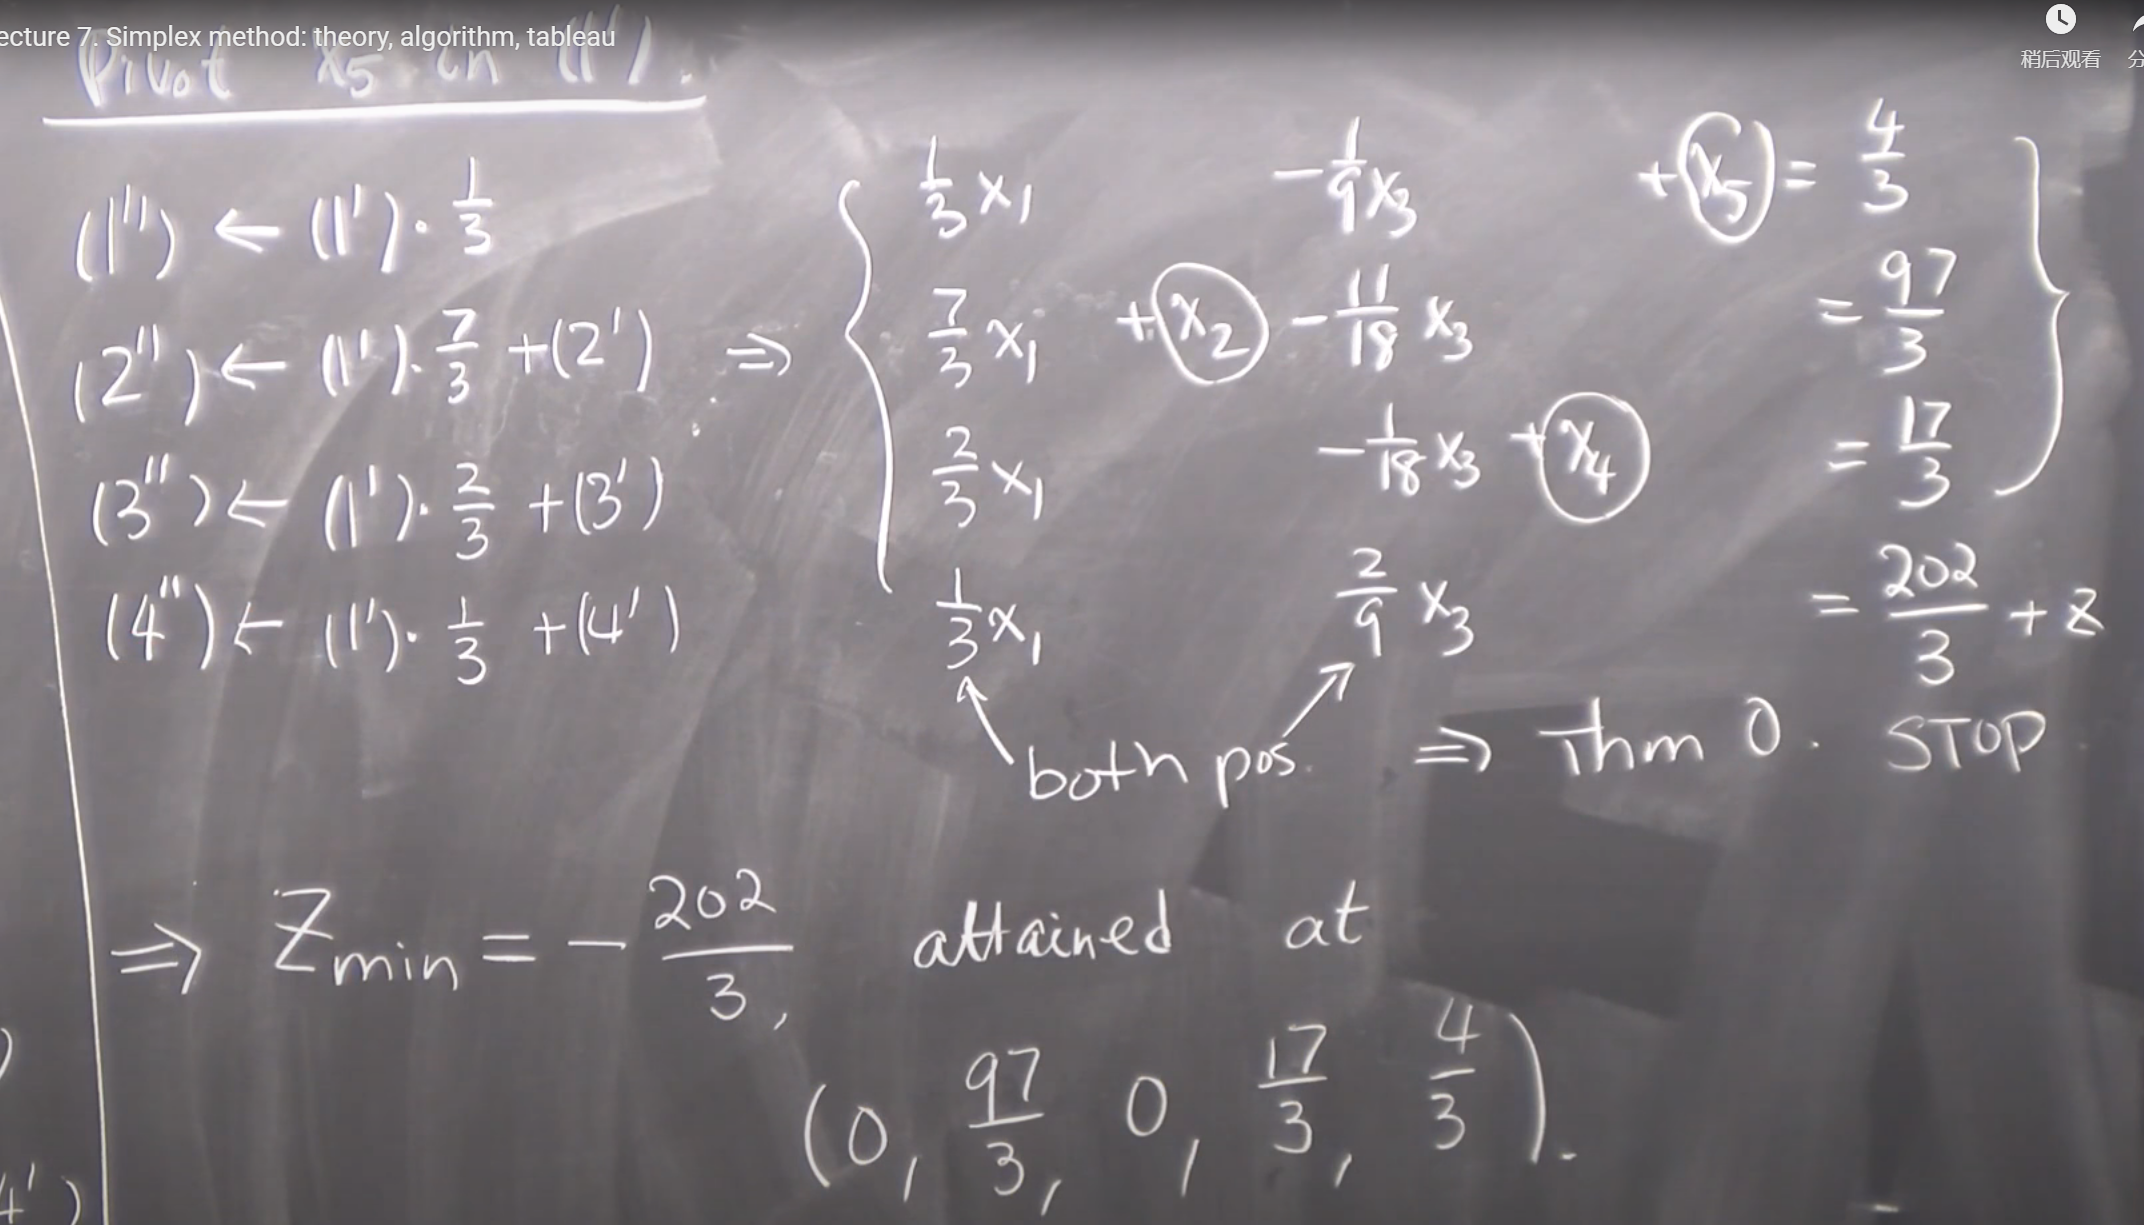 ecture 7. Simplex method: theory, algorithm, tableau
稍后观看
分
Pivot x₅ in (1').
(1'') ← (1')·1/3
(2'') ← (1')·7/3 +(2')
(3'') ← (1')·2/3 +(3')
(4'') ← (1')·1/3 +(4')
⇒
1/3 x₁ −1/9 x₃ + x₅ = 4/3
7/3 x₁ + x₂ − 11/18 x₃ = 97/3
2/3 x₁ −1/18 x₃ + x₄ = 17/3
1/3 x₁ 2/9 x₃ = 202/3 + z
both pos. ⇒ Thm 0. STOP
⇒ Zmin = − 202/3, attained at
(0, 97/3, 0, 17/3, 4/3).
)
4')